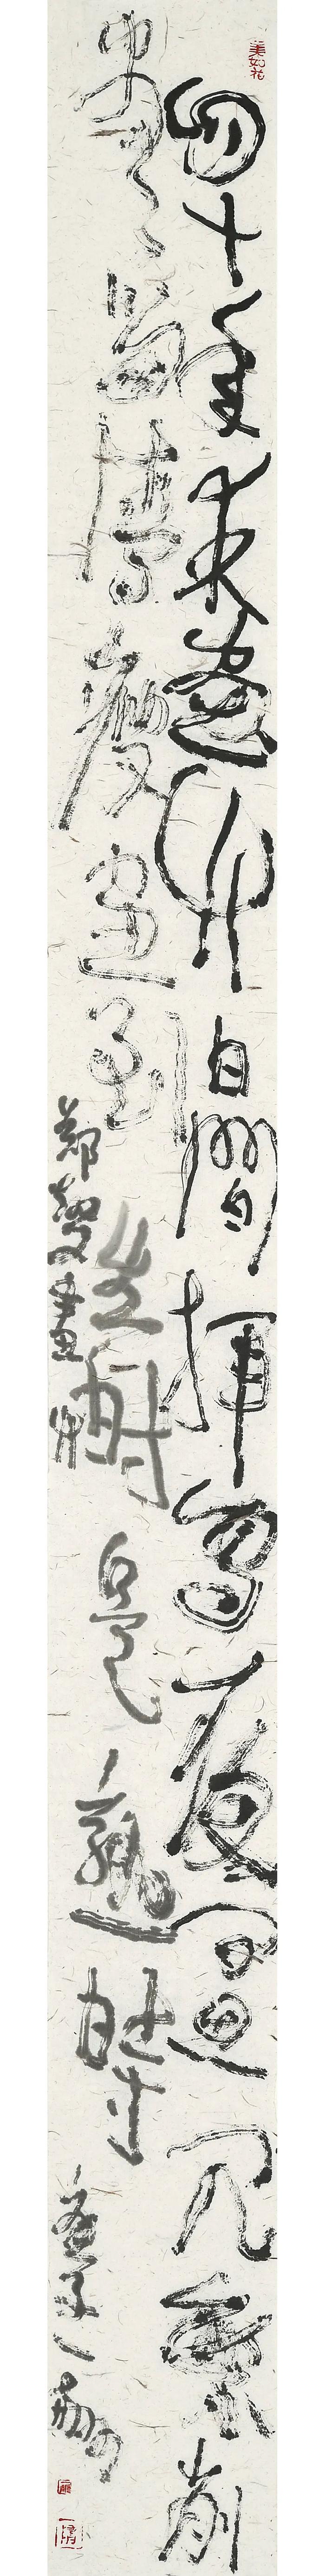 四十年来画竹枝日间挥写夜间思冗繁削
尽留清瘦画到生时是熟时
郑燮画竹